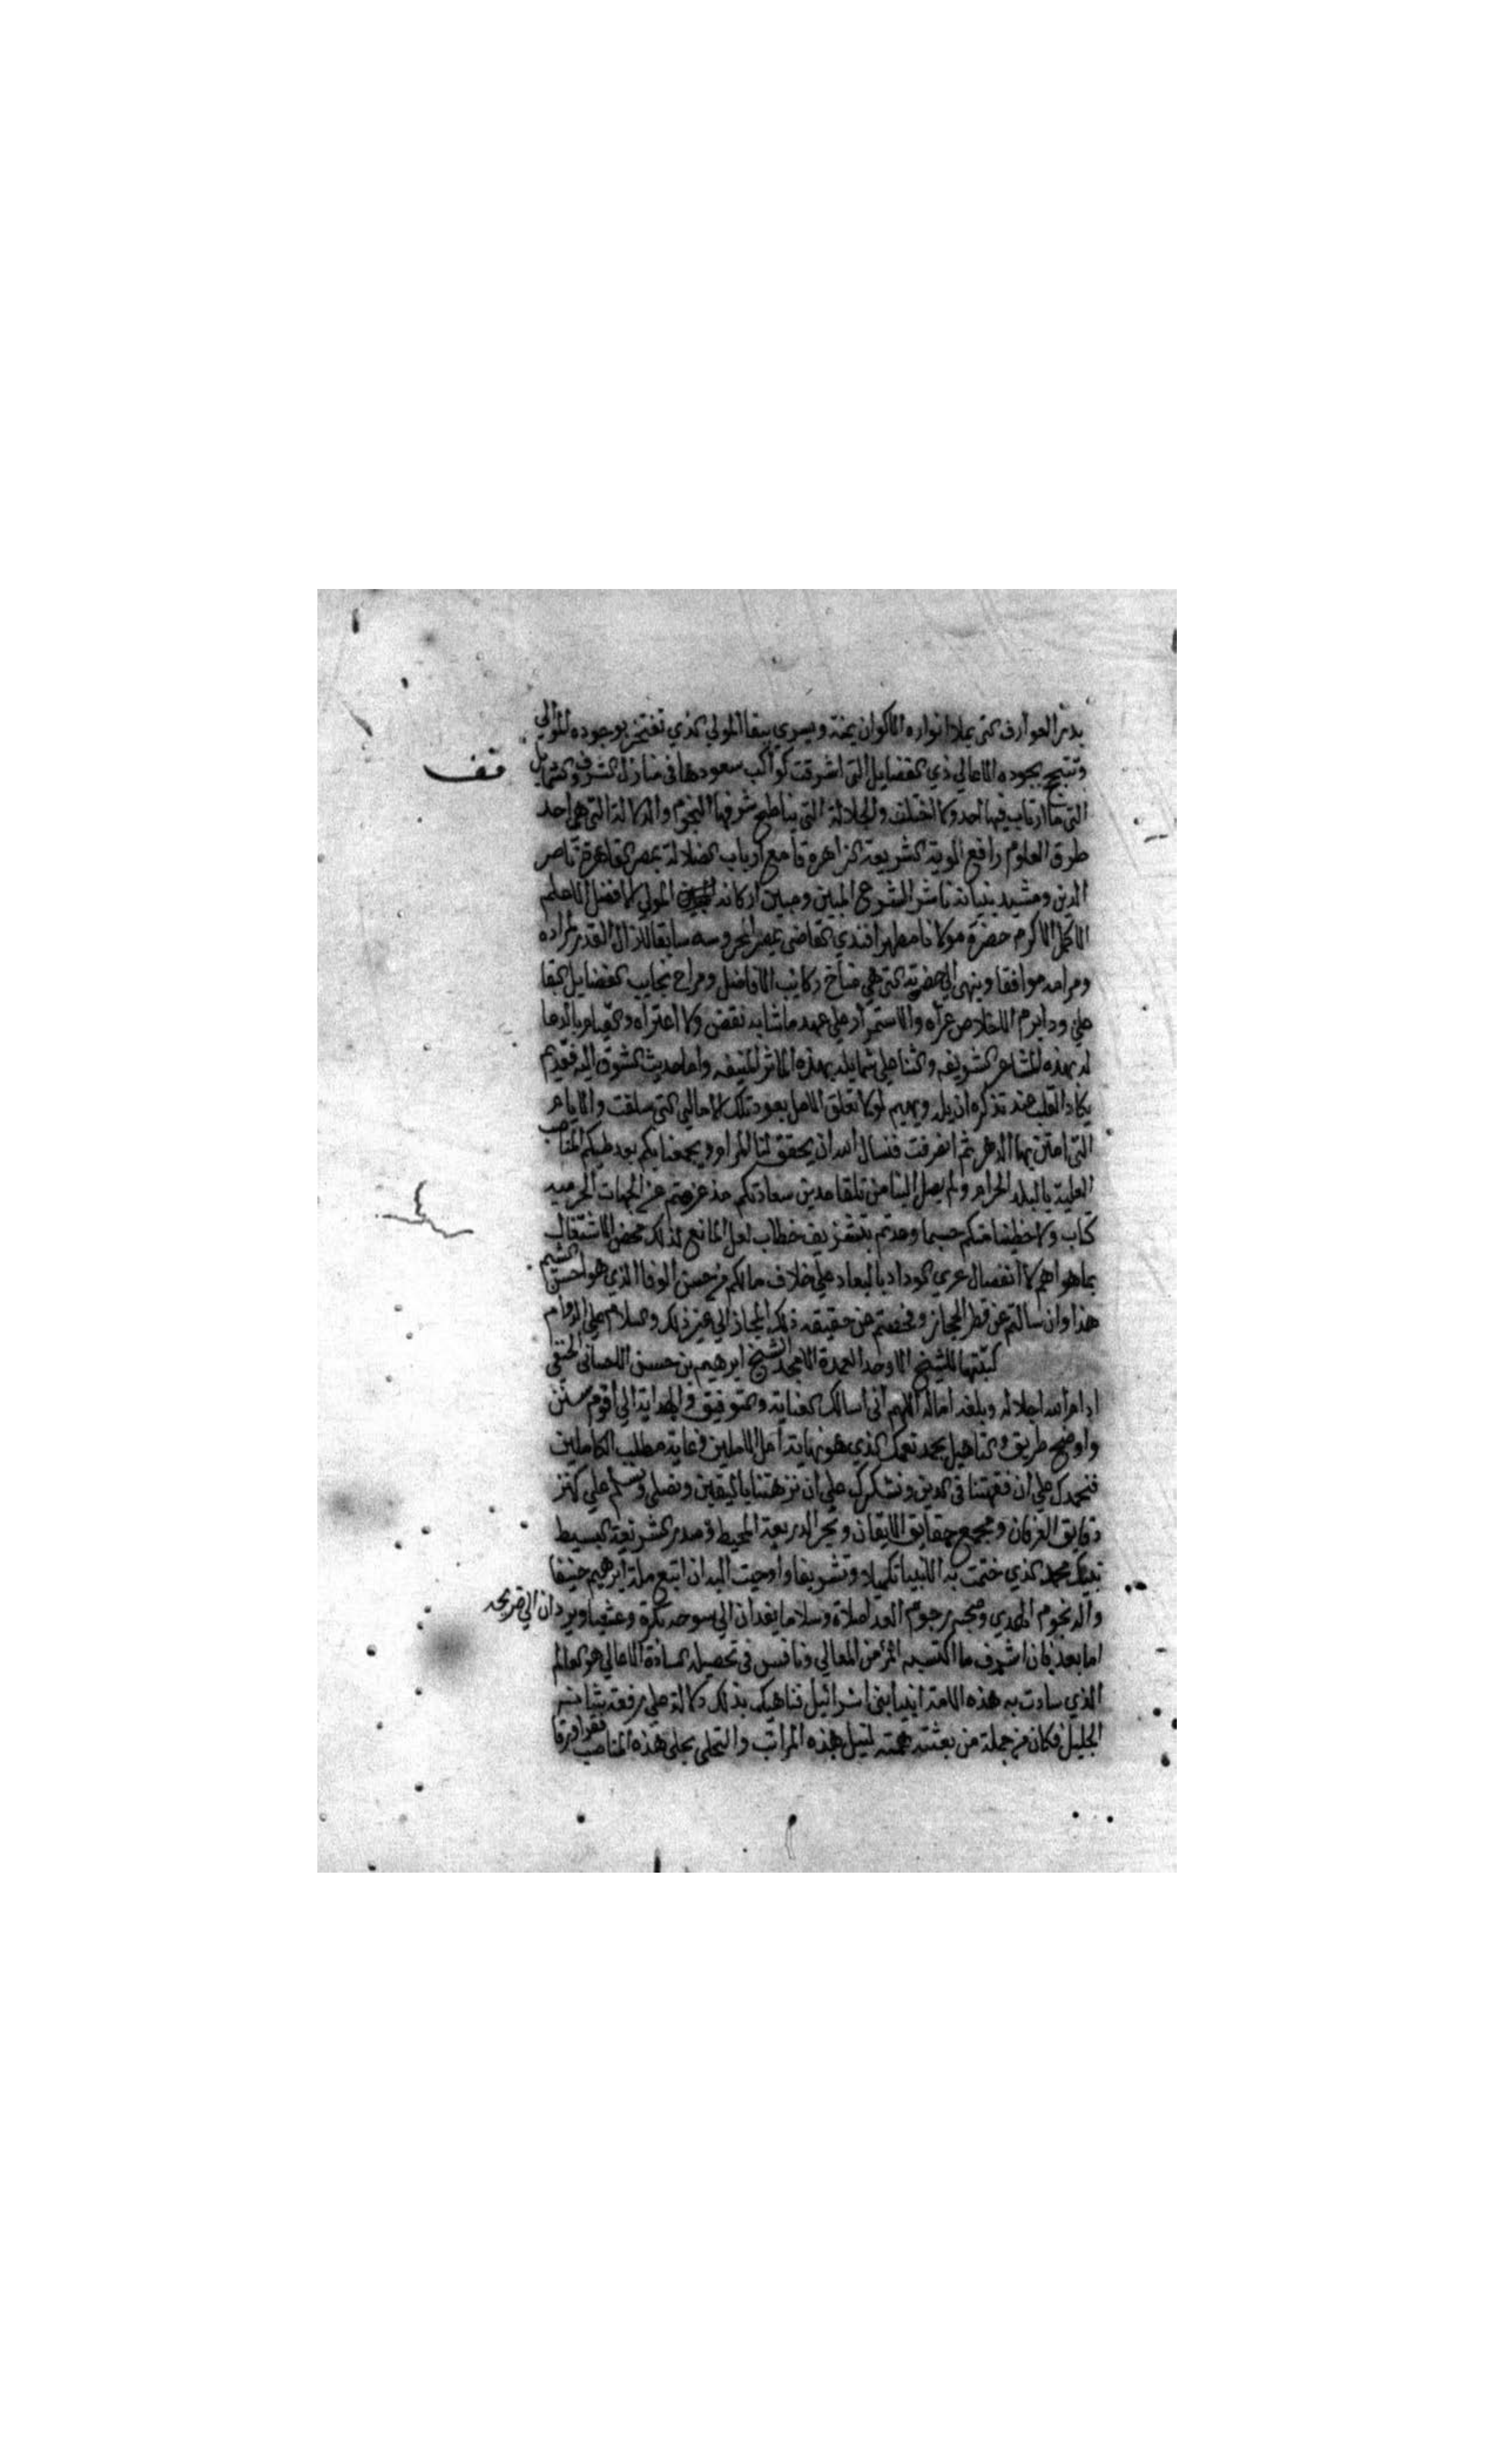 بدر العوارف التي يملا انواره الاكوان يمنة ويسري ببقا المولي الذي تفتخر بوجوده الموالي
وتبتهج بجوده الاعالي ذي الفضايل التي اشرقت كواكب سعودها في منازل الشرف والشمايل
التي ما ارتاب فيها احد ولا اختلف والجلالة التي يناطح شرفها النجوم والدلالة التي هي احد
طرق العلوم رافع الوية الشريعة الزاهرة قامع ارباب الضلالة بمصر القاهرة ناصر
الدين ومشيد بنيانه ناشر الشرع المبين ومبين اركانه المولي الافضل الاعلم
الاكمل الاكرم حضرة مولانا مطهر افندي القاضي بمصر المحروسه سابقا لازال القدر لمراده
ومرامه موافقا وينهي الي حضرته التي هي مناخ ركايب الافاضل ومراح نجايب الفضايل البقا
علي وداد ابرم الاخلاص عراه والاستمرار علي عهد ما شابه نقض ولا اعتراه والقيام بالدعا
له بهذه المشاعر الشريفه والثنا علي شمايله بهذه الماثر المنيفه واما حديث الشوق اليه فقديم
يكاد القلب عند تذكره ان يله ويهيم لولا تعلق الامل بعود تلك الليالي التي سلفت والايام
التي امتن بها الدهر ثم انصرفت فنسال الله ان يحقق لنا المراد ويجمعنا بكم بعد طيكم المناصب
العلية بالبلد الحرام ولم يصل الينا من تلقا مدين سعادتكم مذ عزمتم عن الجهات الحرميه
كتاب ولا حظينا منكم حسبما وعدتم بتشريف خطاب لعل المانع لذلك محض الاشتغال
بما هو اهم لا انفصال عري الوداد بالبعاد علي خلاف مالكم من حسن الوفا الذي هو احسن الشيم
هذا وان سالتم عن قطر الحجاز وفحصتم عن حقيقه ذلك المجاز الي غير ذلك والسلام علي الدوام
كتبتها للشيخ الاوحد العمدة الامجد الشيخ ابرهيم بن حسن الاحسائي الحنفي
ادام الله اجلاله وبلغه اماله اللهم اني اسالك العناية والتوفيق والهداية الي اقوم سنن
واوضح طريق والتاهيل لحمد نعمك الذي هو نهاية امل الاملين وغاية مطلب الكاملين
فنحمدك علي ان فقهتنا في الدين ونشكرك علي ان نزهتنا باليقين ونصلي ونسلم علي كنز
دقايق العرفان ومجمع حقايق الايقان وبحر الدريعة المحيط وصدر الشريعة البسيط
نبيك محمد الذي ختمت به الانبيا تكميلا وتشريفا واوحيت اليه ان اتبع ملة ابرهيم حنيفا
واله نجوم الهدي وصحبه رجوم العدا صلاة وسلاما يغدان الي سوحه بكرة وعشيا ويردان الي ضريحه
اما بعد فان اشرف ما اكتسبه المرء من المعالي ونافس في تحصيله السادة الاعالي هو العلم
الذي سادت به هذه الامة انبيا بني اسرائيل فناهيك بذلك دلالة علي رفعة شانه
الجليل فكان من جملة من بعثته همته لنيل هذه المراتب والتحلي بحلي هذه المناصب